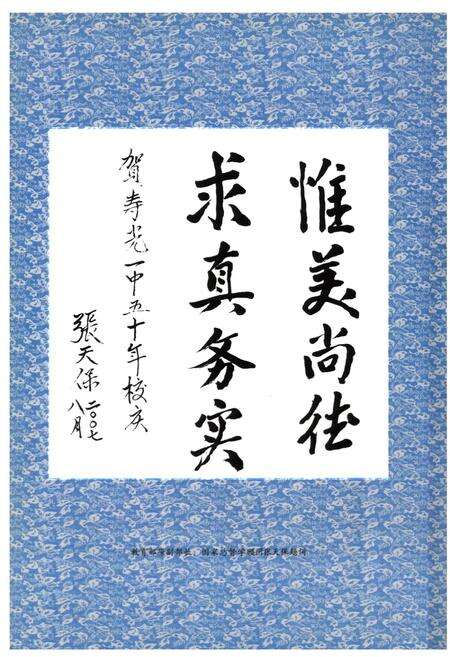 惟美尚德
求真务实
贺寿光一中五十年校庆
張天保
二〇〇七
八月
教育部原副部长、国家总督学顾问张天保题词